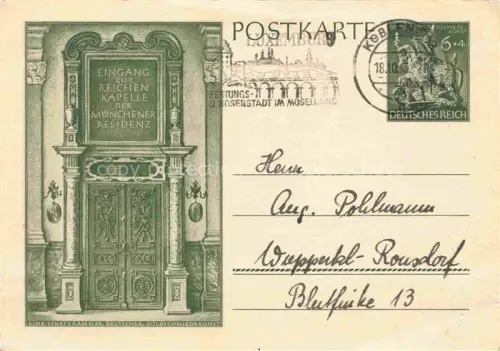 POSTKARTE
LUXEMBURG
FESTUNGS-
U. ROSENSTADT IM MOSELLAND
KOBLENZ
18.10.
6+4
DEUTSCHES REICH
EINGANG
ZUR
REICHEN
KAPELLE
DER
MÜNCHENER
RESIDENZ
Herrn
Aug. Pohlmann
Wuppertal-Ronsdorf
Blutfinke 13
EINE SCHATZKAMMER DEUTSCHER GOLDSCHMIEDEKUNST